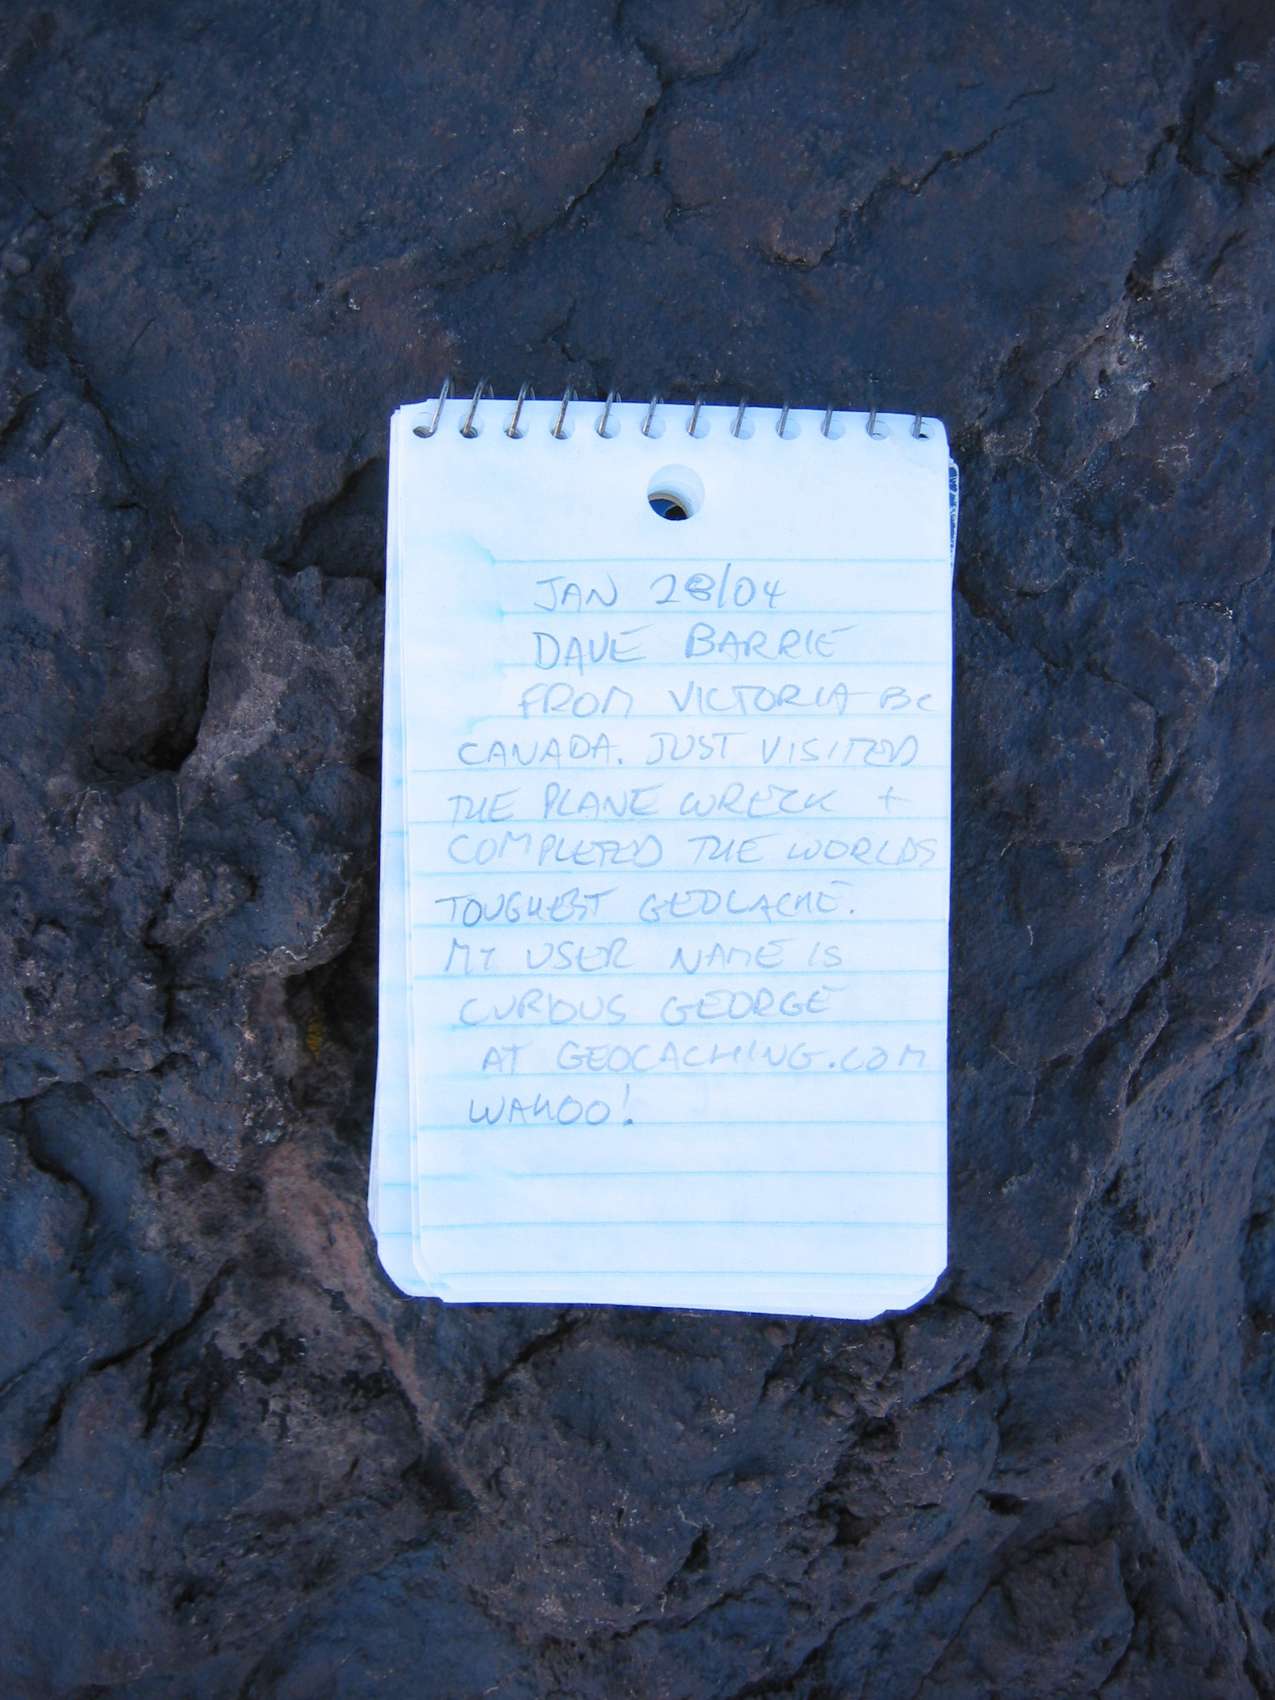 JAN 28/04
DAVE BARRIE
FROM VICTORIA BC
CANADA. JUST VISITED
THE PLANE WRECK +
COMPLETED THE WORLDS
TOUGHEST GEOCACHE.
MY USER NAME IS
CURIOUS GEORGE
AT GEOCACHING.COM
WAHOO!